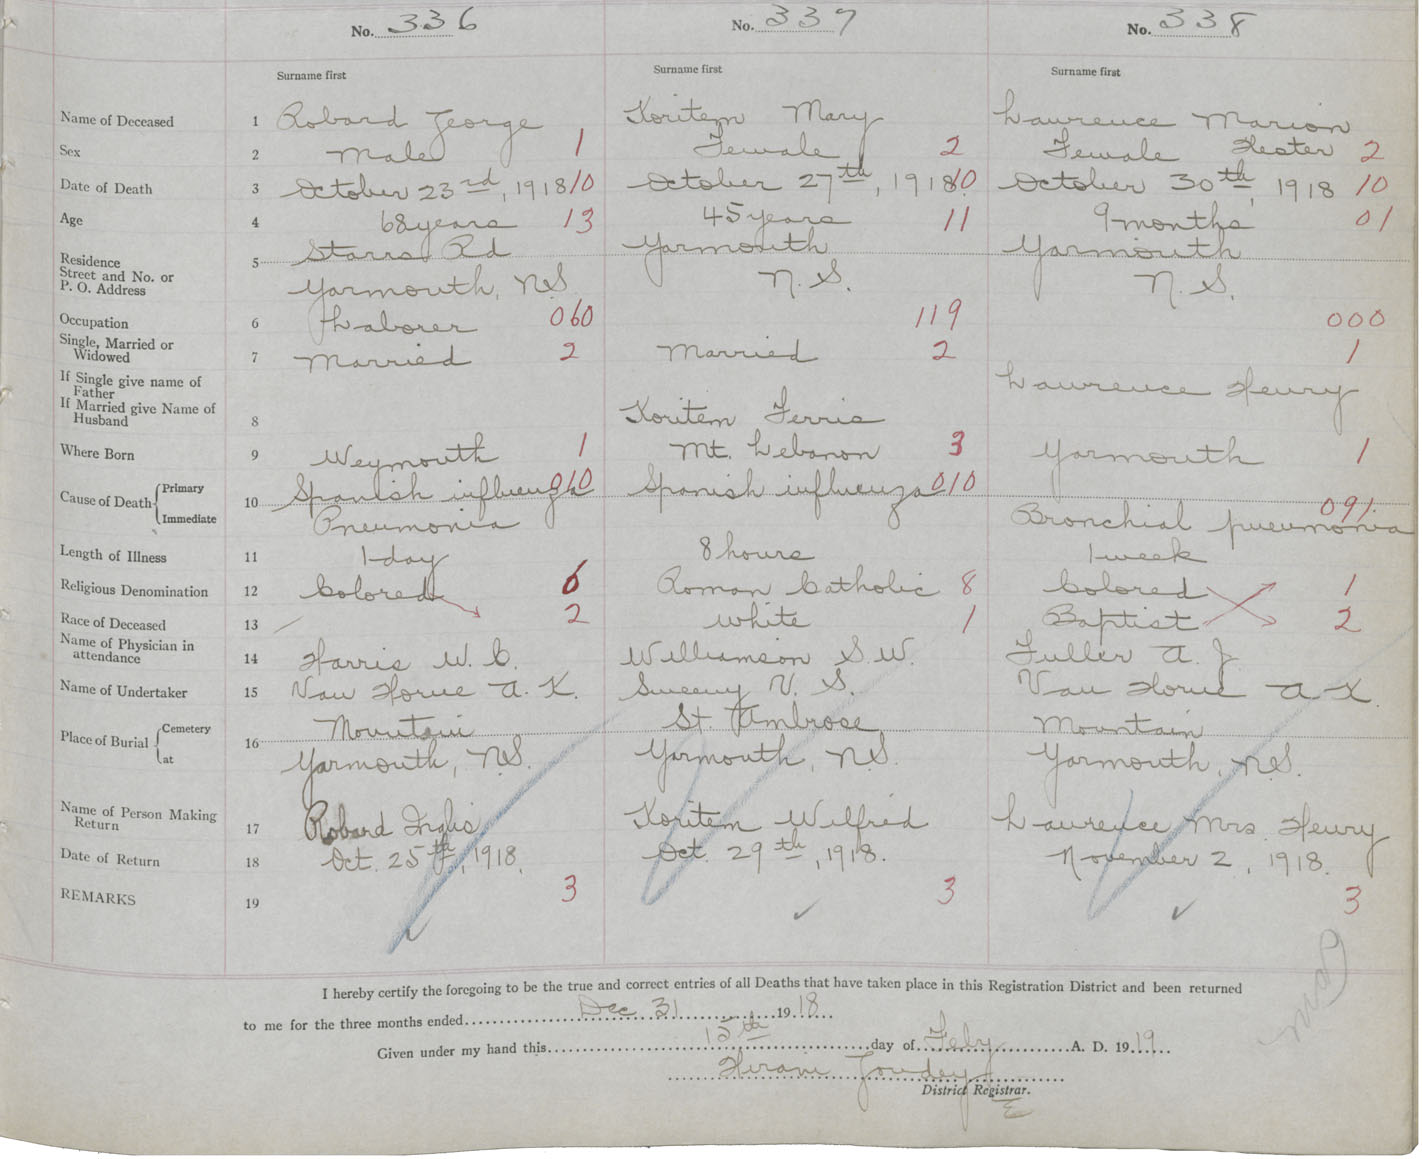 No. 336 No. 337 No. 338
Surname first Surname first Surname first
Name of Deceased 1 Robard George Koritem Mary Lawrence Marion
Sex 2 Male 1 Female 2 Female Hester 2
Date of Death 3 October 23rd, 1918 10 October 27th, 1918 10 October 30th, 1918 10
Age 4 68 years 13 45 years 11 9 months 01
Residence 5 Starrs Rd Yarmouth Yarmouth
Street and No. or
P. O. Address Yarmouth, N.S. N. S. N. S.
Occupation 6 Laborer 060 119 000
Single, Married or
Widowed 7 Married 2 Married 2 1
If Single give name of
Father Lawrence Henry
If Married give Name of
Husband 8 Koritem Ferris
Where Born 9 Weymouth 1 Mt. Lebanon 3 Yarmouth 1
Cause of Death Primary 10 Spanish influenza 010 Spanish influenza 010 091
Immediate Pneumonia Bronchial pneumonia
Length of Illness 11 1 day 8 hours 1 week
Religious Denomination 12 Colored 6 Roman Catholic 8 Colored 1
Race of Deceased 13 2 white 1 Baptist 2
Name of Physician in
attendance 14 Harris W. C. Williamson S. W. Fuller A. J.
Name of Undertaker 15 Van Horne A. K. Sweeny V. S. Van Horne A K.
Place of Burial Cemetery 16 Mountain St. Ambrose Mountain
at Yarmouth, N.S. Yarmouth, N.S. Yarmouth, N.S.
Name of Person Making
Return 17 Robard Inglis Koritem Wilfred Lawrence Mrs. Henry
Date of Return 18 Oct. 25th, 1918. Oct. 29th, 1918. November 2, 1918.
REMARKS 19 3 3 3
I hereby certify the foregoing to be the true and correct entries of all Deaths that have taken place in this Registration District and been returned
to me for the three months ended Dec 31 1918
Given under my hand this 15th day of Feby A. D. 1919
Hiram Goudey
District Registrar.